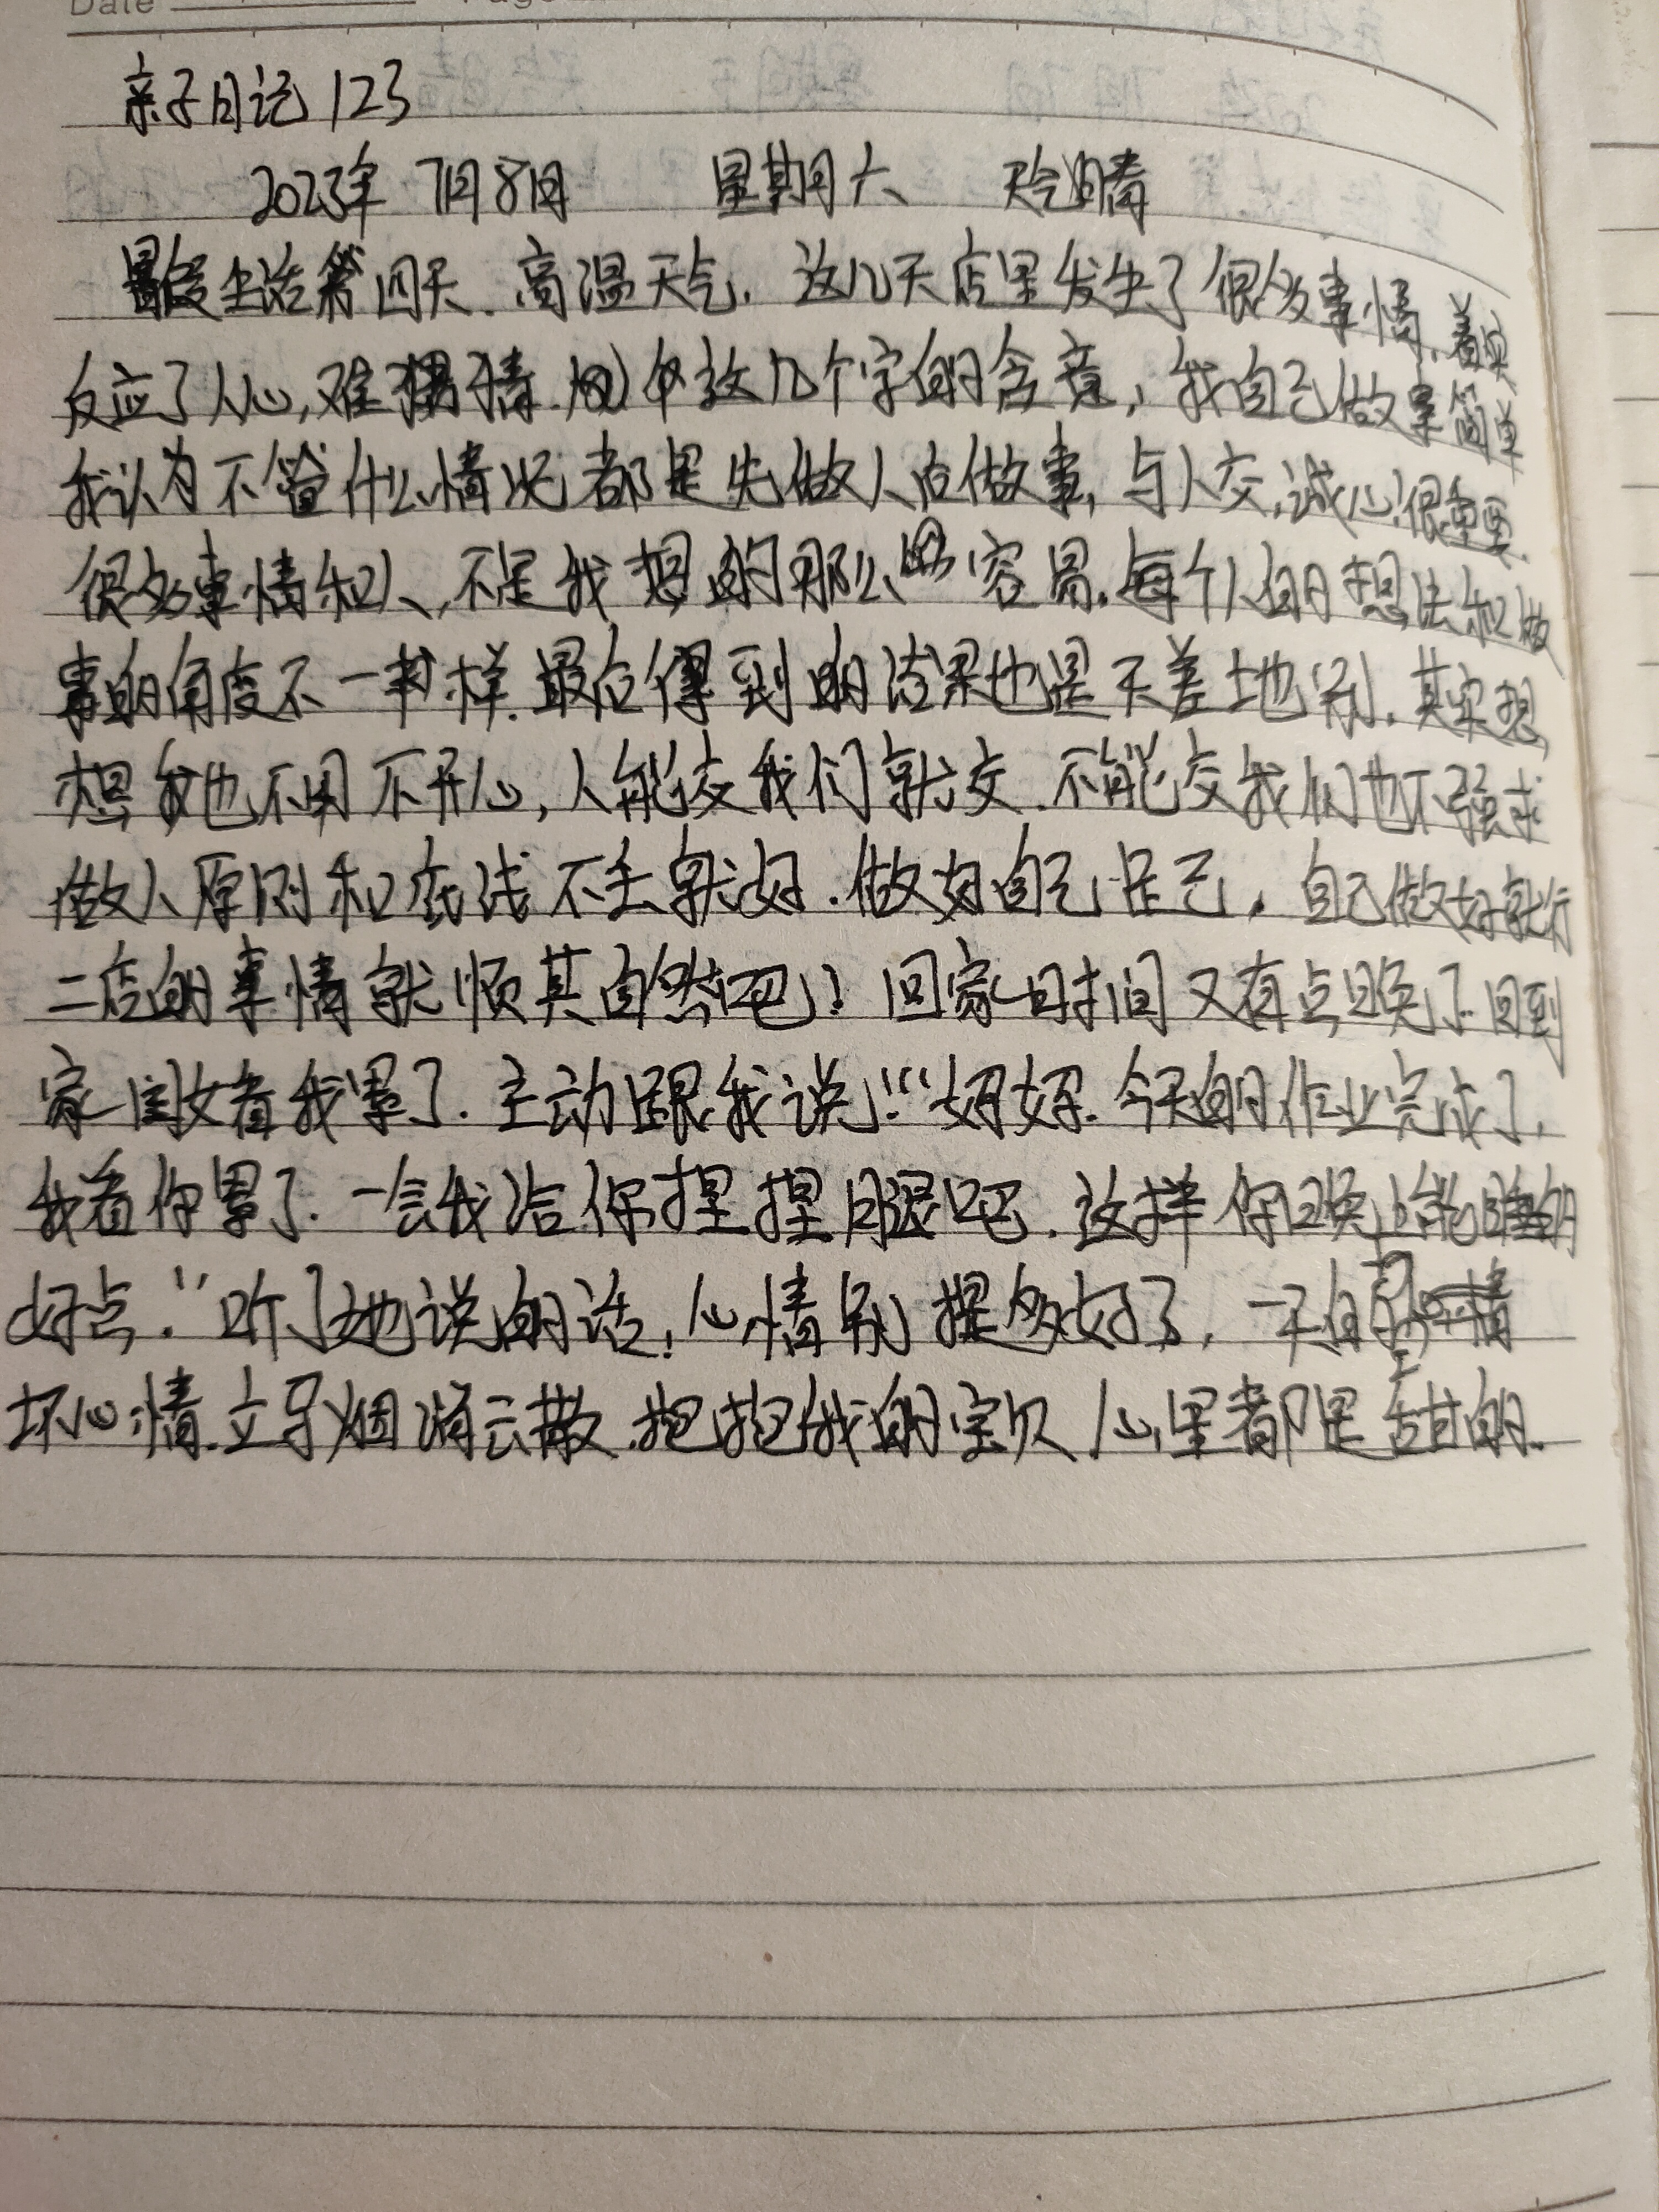 Date Page
亲子日记123
2023年 7月8日 星期六 天气:晴
暑假生活第四天.高温天气.这几天店里发生了很多事情,着实
反应了人心,难 情. 这几个字的含意,我自己做单简单
我认为不管什么情况都是先做人后做事,与人交,诚心很重要.
很多事情和人,不是我想的那么 容易.每个人的想法和做
事的角度不一 样.最后得到的结果也是天差地别.其实想
想我也不用不开心,人能交我们就交.不能交我们也不强求
做人原则和底线不丢就好.做好自己 自己,自己做好就行
二店的事情就顺其自然吧!回家时间又有点晚了.回到
家闺女看我累了.主动跟我说:“妈妈.今天的作业完成了,
我看你累了.一会我给你捏捏腿吧.这样你晚上能睡的
好点.”听了她说的话,心情别提多好了,一天的 情
坏心情.立马烟消云散.抱抱我的宝贝心里都是甜的.